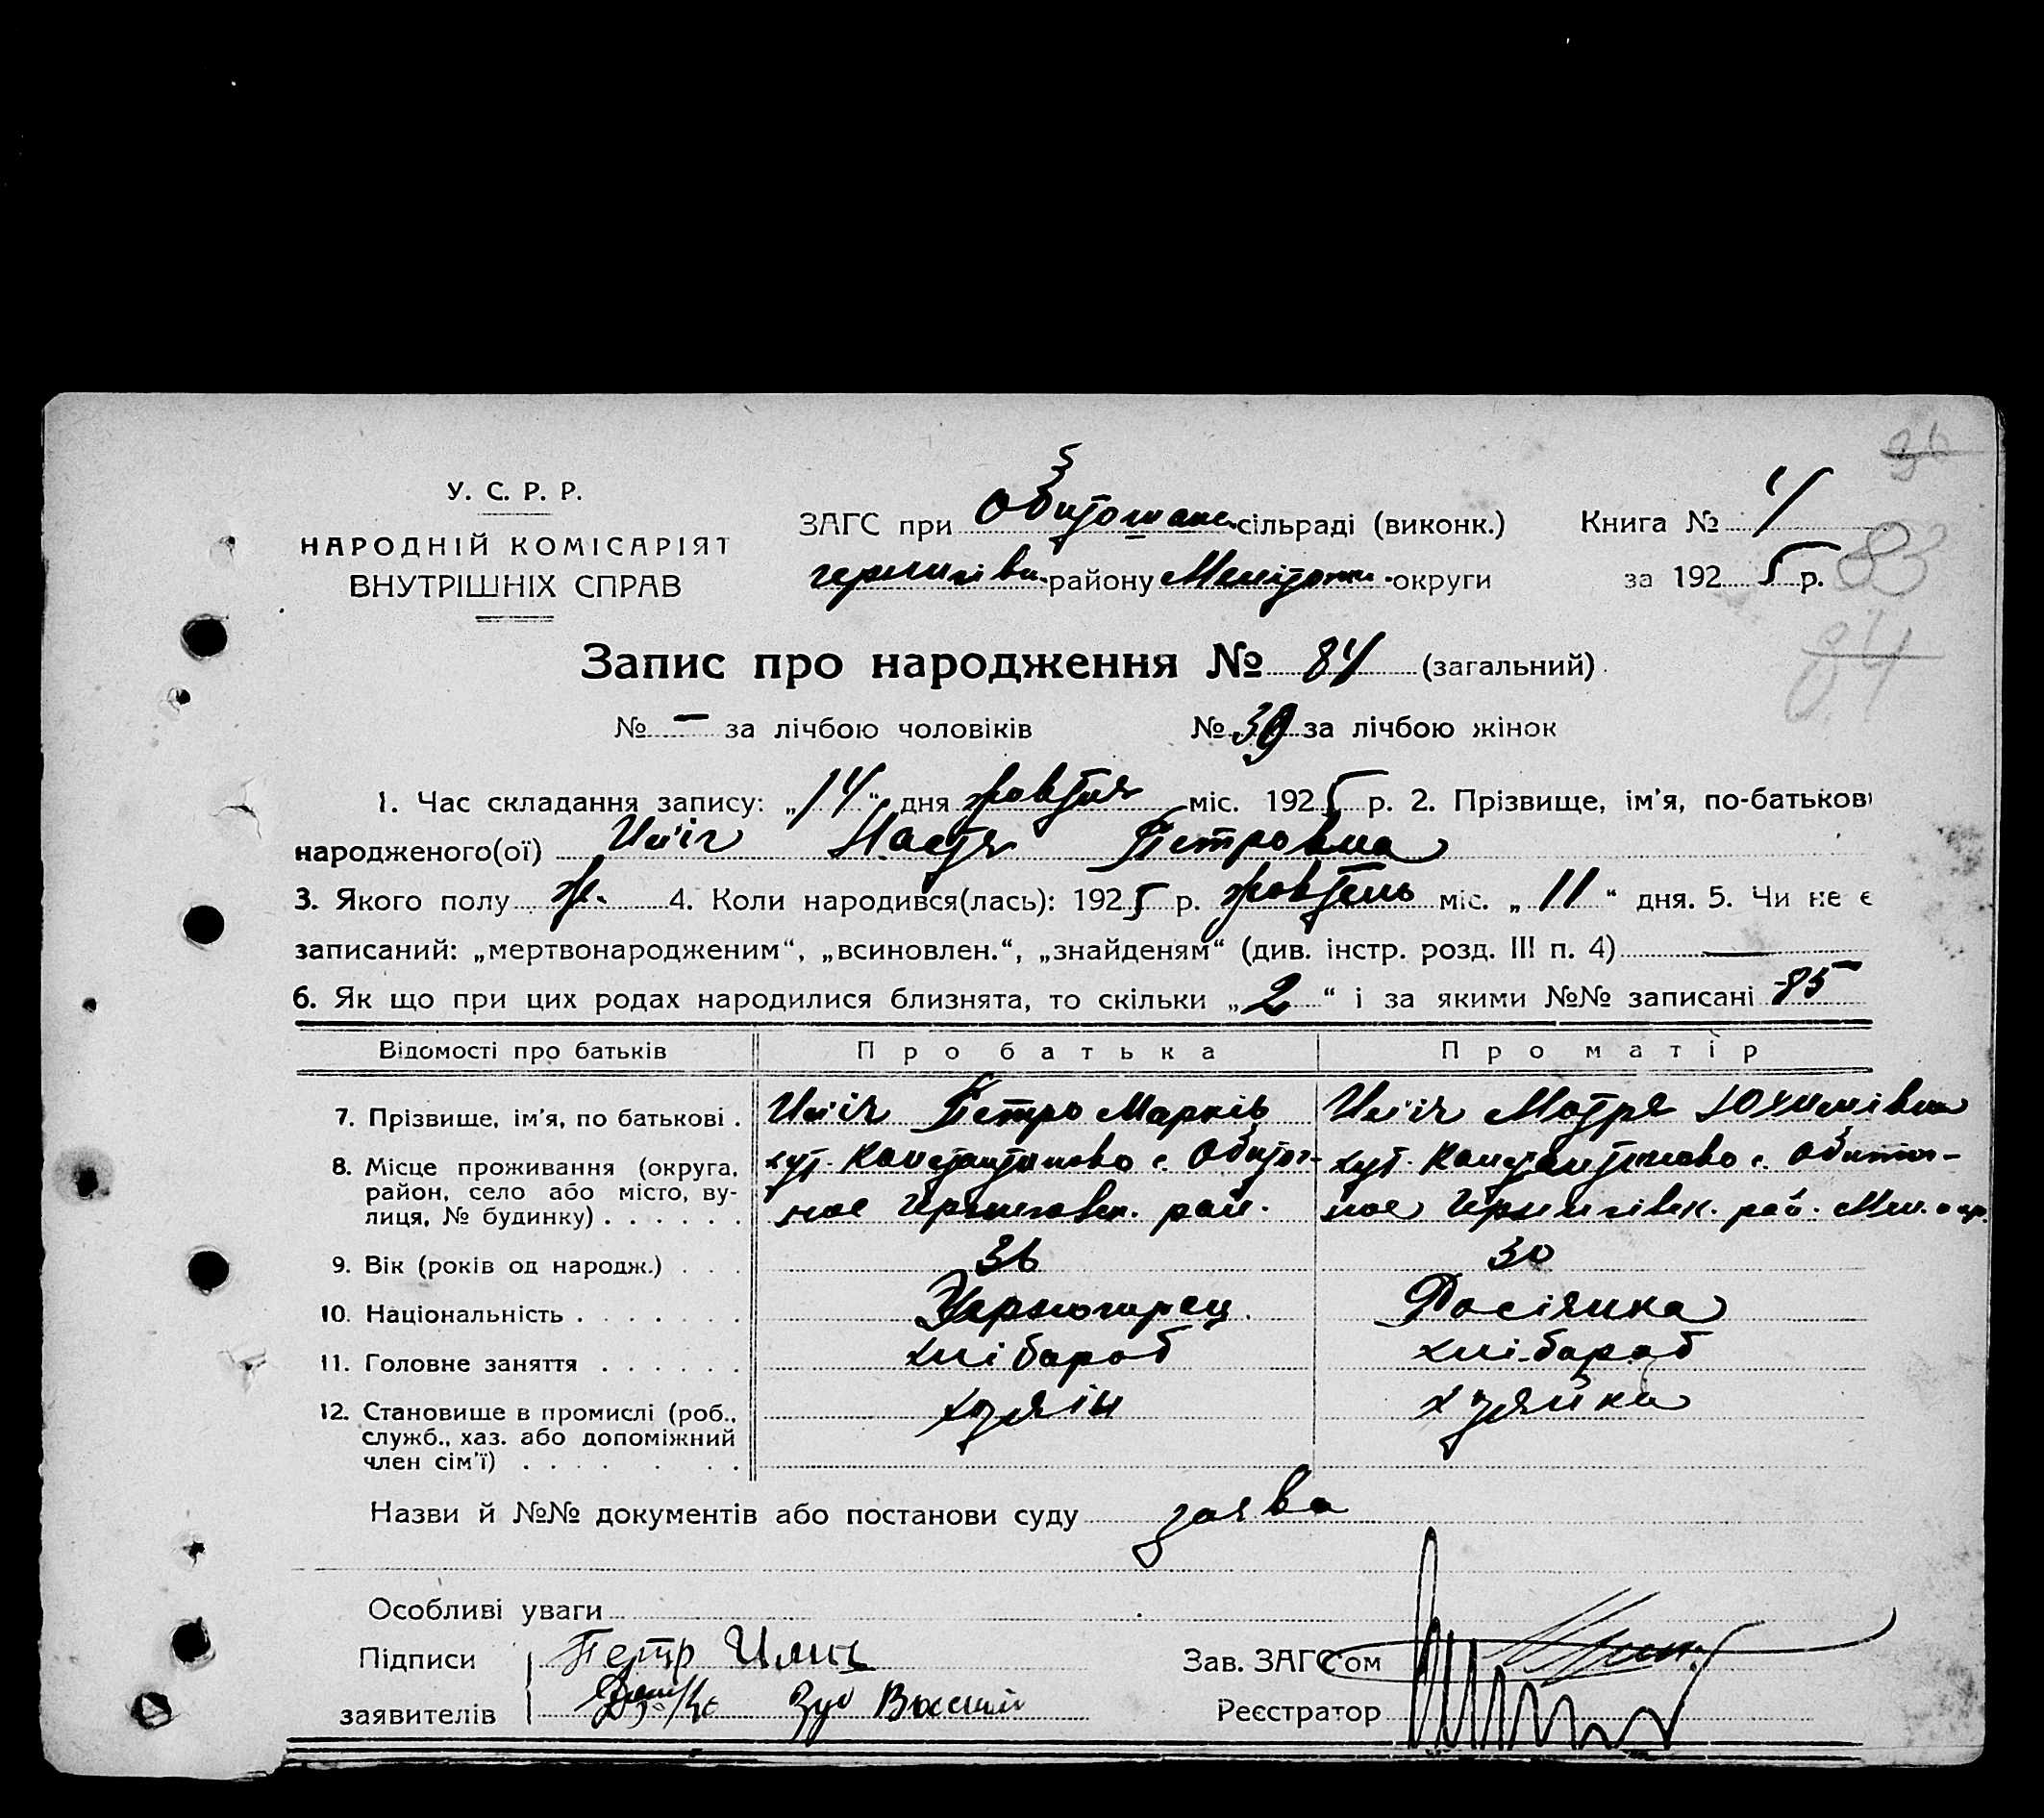 У. С. Р. Р.
НАРОДНІЙ КОМІСАРІЯТ
ВНУТРІШНІХ СПРАВ
ЗАГС при Обитошанс. сільраді (виконк.)
Чернигівск. району Мелітоп. округи
Книга № 4
за 1925 р.
83
84
Запис про народження № 84 (загальний)
№ – за лічбою чоловіків № 39 за лічбою жінок
1. Час складання запису: „14“ дня жовтня міс. 1925 р. 2. Прізвище, ім'я, по-батькові
народженого(ої) Илііч Настя Петровна
3. Якого полу ж. 4. Коли народився(лась): 1925 р. жовтень міс. „11“ дня. 5. Чи не є
записаний: „мертвонародженим“, „всиновлен.“, „знайденям“ (див. інстр. розд. III п. 4) —
6. Як що при цих родах народилися близнята, то скільки „2“ і за якими №№ записані 85
Відомості про батьків Про батька Про матір
7. Прізвище, ім'я, по батькові . Илііч Петро Марків Илііч Мотря Юхимівна
8. Місце проживання (округа, хут. Константиново с. Обиточ- хут. Константиново с. Обиточ-
район, село або місто, ву-
лиця, № будинку) . . . . . . ное Черниговск. рай. ное Чернигівск. рай. Мел. окр.
9. Вік (років од народж.) . . . 36 30
10. Національність . . . . . . . Чорногорец. Росіянка
11. Головне заняття . . . . . . хлібороб хлі-бороб
12. Становище в промислі (роб., хозяін хозяйка
служб., хаз. або допоміжний
член сім'ї) . . . . . . .
Назви й №№ документів або постанови суду заява
Особливі уваги
Підписи Петр Илич
заявителів Зуб Василий
Зав. ЗАГС'ом
Реєстратор